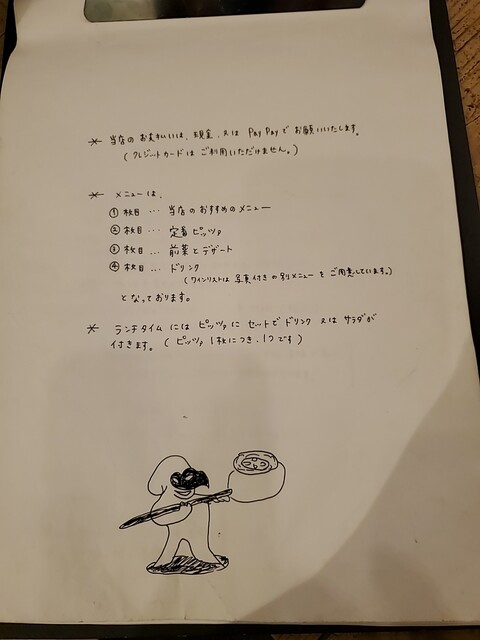 * 当店のお支払いは、現金、又は PayPayで お願いいたします。
（クレジットカードは ご利用いただけません。）
* メニューは、
① 枚目 … 当店のおすすめのメニュー
② 枚目 … 定番ピッツァ
③ 枚目 … 前菜とデザート
④ 枚目 … ドリンク
（ワインリストは 写真付きの別メニューをご用意しています。）
となっております。
* ランチタイムにはピッツァにセットでドリンク又はサラダが
付きます。（ピッツァ1枚につき、1つです）